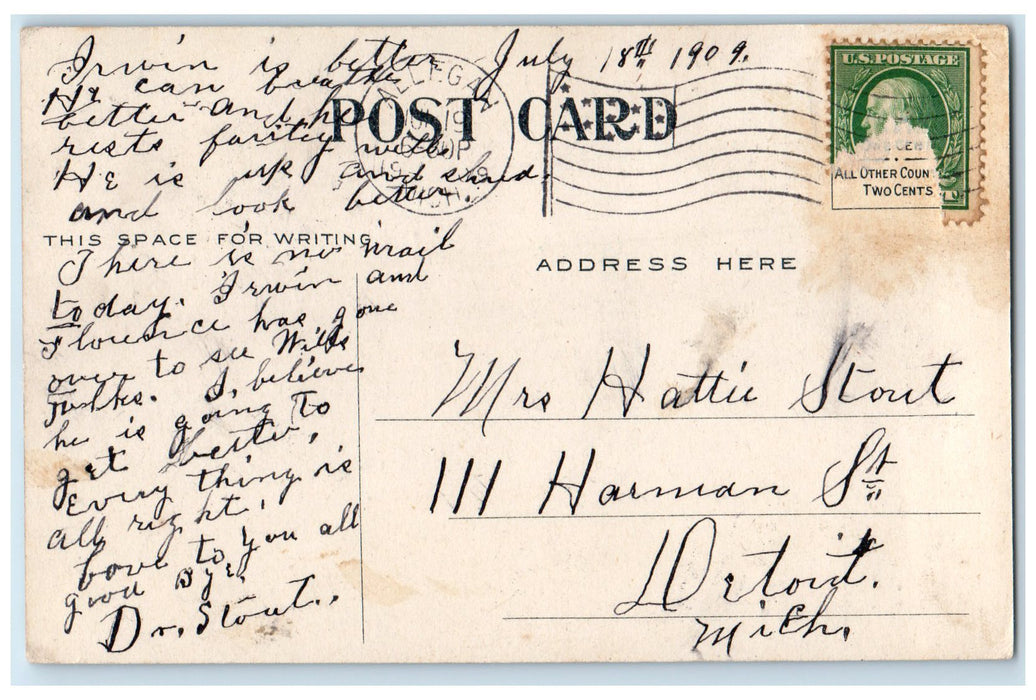 July 18th 1909.
Irwin is better
He can breathe
better and he
rests fairly well.
He is up and shaved.
and look better.
POST CARD
ALLEGAN
U.S. POSTAGE
ALL OTHER COUN
TWO CENTS
THIS SPACE FOR WRITING
There is no mail
today. Irwin and
Florence has gone
over to see Wills
folks. I believe
he is going To
get better.
Every thing is
all right.
love to you all
good Bye.
Dr. Stout.
ADDRESS HERE
Mrs Hattie Stout
111 Harman St
Detoit.
Mich.